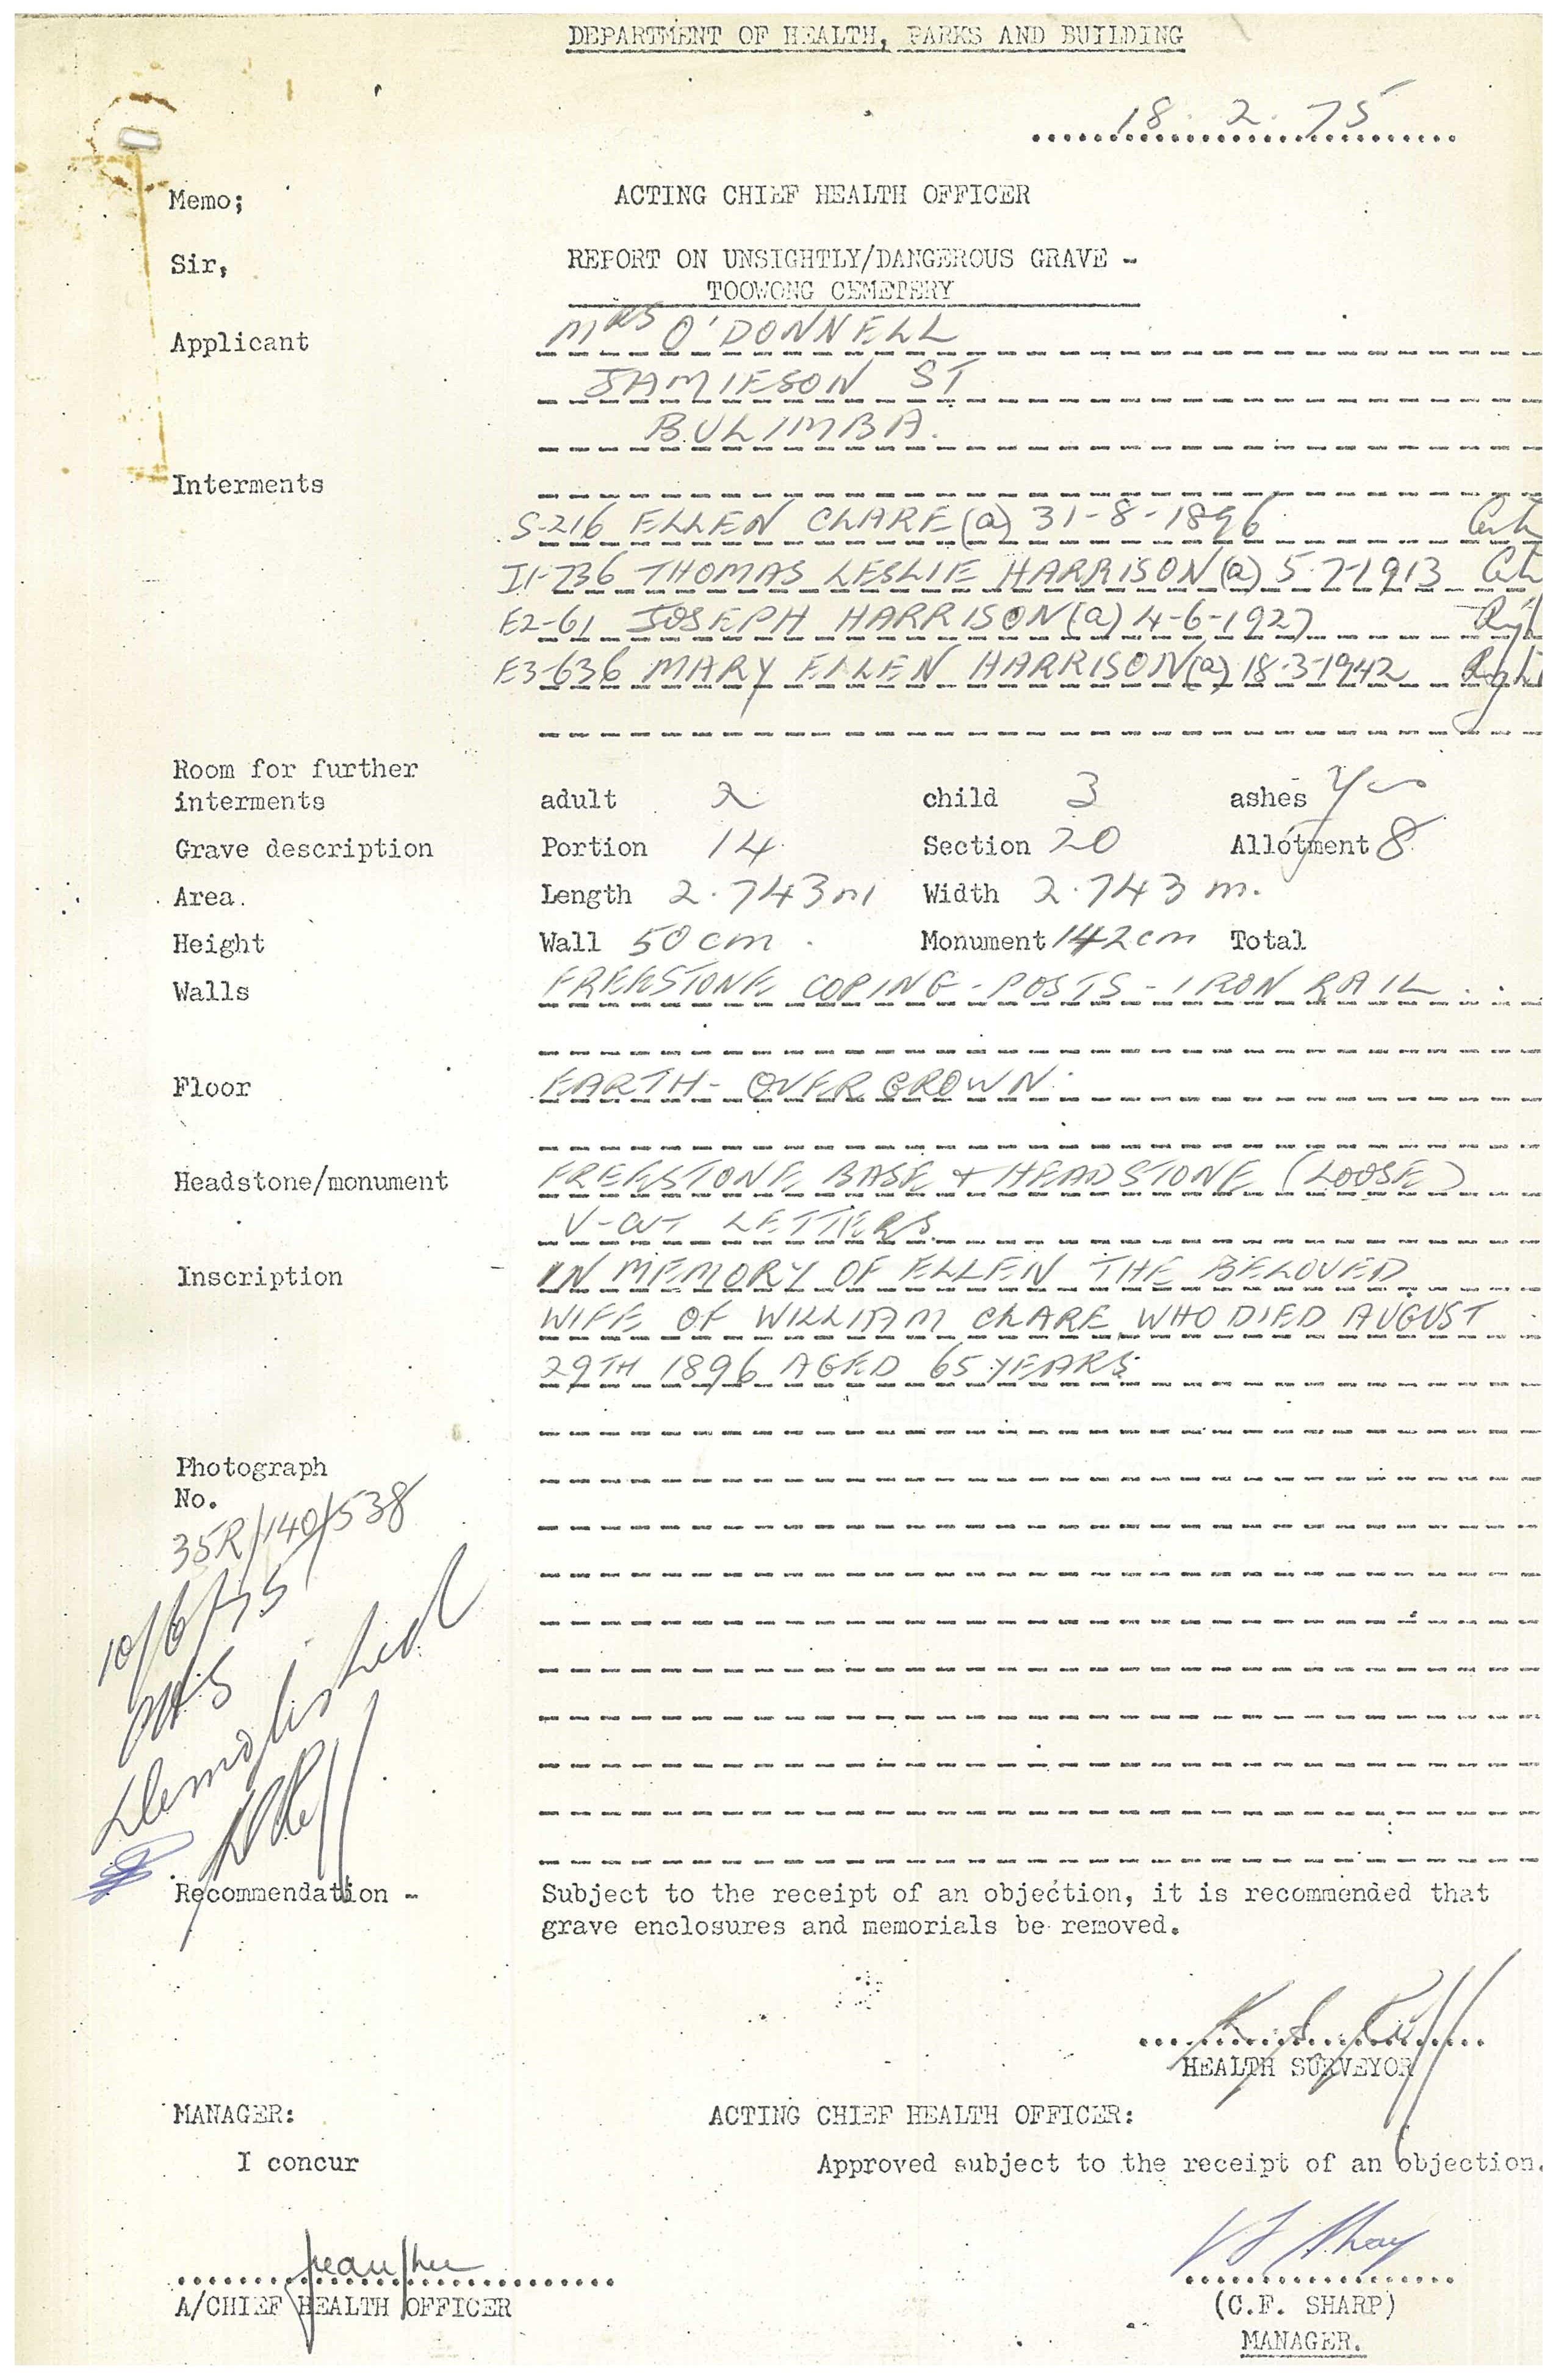 DEPARTMENT OF HEALTH, PARKS AND BUILDING
18.2.75
Memo; ACTING CHIEF HEALTH OFFICER
Sir, REPORT ON UNSIGHTLY/DANGEROUS GRAVE -
TOOWONG CEMETERY
Applicant MRS O'DONNELL
JAMIESON ST
BULIMBA.
Interments
S-216 ELLEN CLARE (a) 31-8-1896
I1-736 THOMAS LESLIE HARRISON (a) 5-7-1913
E2-61 JOSEPH HARRISON (a) 4-6-1927
E3-636 MARY ELLEN HARRISON (a) 18-3-1942 Right
Room for further
interments adult 2 child 3 ashes Yes
Grave description Portion 14 Section 20 Allotment 8
Area. Length 2.743m Width 2.743 m.
Height Wall 50cm. Monument 142cm Total
Walls FREESTONE COPING - POSTS - IRON RAIL
Floor EARTH - OVERGROWN
Headstone/monument FREESTONE BASE + HEADSTONE (LOOSE)
V-CUT LETTERS
Inscription IN MEMORY OF ELLEN THE BELOVED
WIFE OF WILLIAM CLARE WHO DIED AUGUST
29TH 1896 AGED 65 YEARS
Photograph
No.
35R/140/538
10/6/75
Demolished
Recommendation - Subject to the receipt of an objection, it is recommended that
grave enclosures and memorials be removed.
HEALTH SURVEYOR
MANAGER: ACTING CHIEF HEALTH OFFICER:
I concur Approved subject to the receipt of an objection.
A/CHIEF HEALTH OFFICER (C.F. SHARP)
MANAGER.